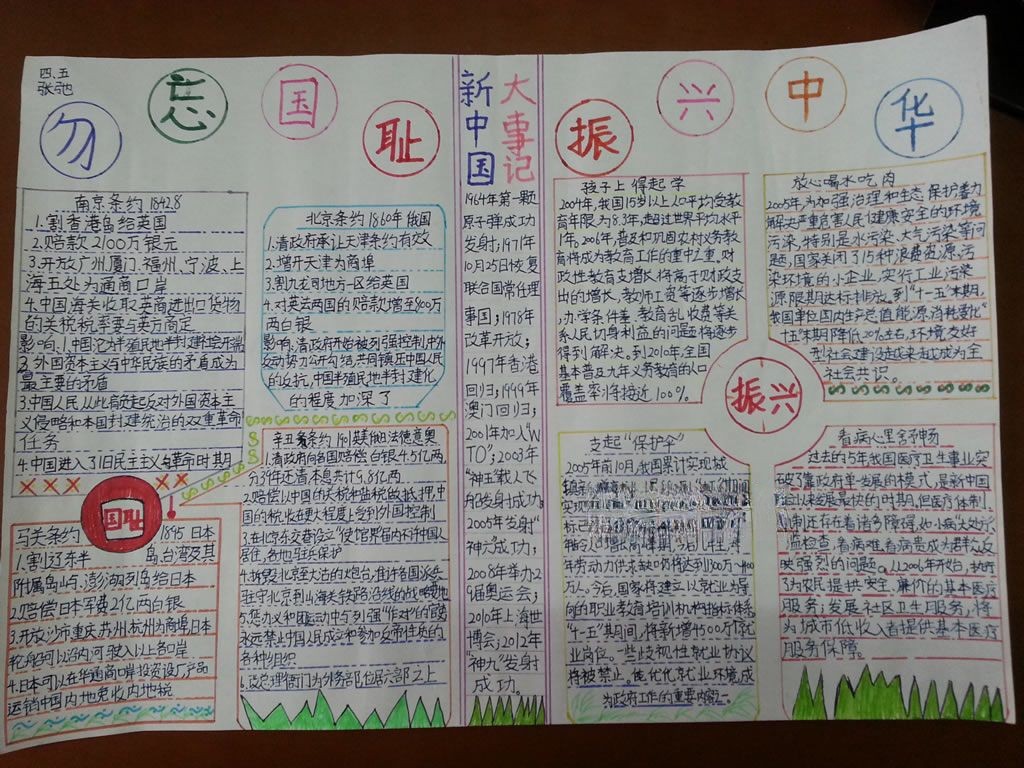 四、五
张弛
勿忘国耻
振兴中华
南京条约 1842.8
1.割香港岛给英国
2.赔款2100万银元
3.开放广州厦门、福州、宁波、上
海五处为通商口岸
4.中国海关收取英商进出口货物
的关税税率要与英方商定
影响:1.中国沦为半殖民地半封建社会开端
2.外国资本主义与中华民族的矛盾成为
最主要的矛盾
3.中国人民从此肩负起反对外国资本主
义侵略和本国封建统治的双重革命
任务
4.中国进入了旧民主主义革命时期
国耻
马关条约 1895 日本
1.割辽东半岛台湾及其
附属岛屿、澎湖列岛给日本
2.赔偿日本军费2亿两白银
3.开放沙市重庆苏州杭州为商埠日本
轮船可以沿内河驶入以上各口岸
4.日本可以在华通商口岸投资设厂产品
运销中国内地免收内地税
北京条约1860年俄国
1.清政府承认天津条约有效
2.增开天津为商埠
3.割九龙司地方一区给英国
4.对英法两国的赔款增至800万
两白银
影响:清政府开始被列强控制,中外
反动势力公开勾结,共同镇压中国人民
的反抗,中国半殖民地半封建化
的程度加深了
辛丑条约1901英美俄日法德意奥
1.清政府向各国赔偿白银4.5亿两,
分39年还清本息共计9.8亿两
2.赔偿以中国的关税和盐税做抵押,中
国的税收在更大程度上受到外国控制
3.在北京东交巷设立"使馆界"馆内不许中国人
居住,各地驻兵保护
4.拆毁北京至大沽的炮台,准许各国派兵
驻守北京到山海关铁路沿线的战略要地
永远禁止中国人民成立和参加反帝性质的
各种组织
6.改总理衙门为外务部,位居六部之上
新中国
大事记
1964年第一颗
原子弹成功
发身;1971年
10月25日恢复
联合国常任理
事国;1978年
改革开放;
1997年香港
回归;1999年
澳门回归;
2001年加入"W
TO";2003年
"神五"载人飞
船发身成功;
2005年发身"
神六"成功;
2008年举办2
9届奥运会;
2010年上海世
博会;2012年
"神九"发身
成功。
孩子上得起学
2004年,我国15岁以上人口平均受教
育年限为8.3年,超过世界平均水平
1年。2006年,普及和巩固农村义务教
育将成为教育工作的重中之重。对
政性教育支增长将高于财政支
出的增长,教师工资等逐步增长
,办学条件差、教育乱收费等关
系人民切身利益的问题将逐步
得到解决。到2010年,全国
基本普及九年义务教育的人口
覆盖率将接近100%。
放心喝水吃肉
2005年,为加强治理和生态保护着力
解决严重危害人民健康安全的环境
污染,特别是水污染、大气污染等问
题,国家关闭了15种浪费资源,污
染环境的小企业,实行工业污染
源限期达标排放。到"十一五"末期,
我国单位国内生产总值能源消耗要比"
十五"末期降低20%左右,环境友好
型社会建设越来越成为全
社会共识。
振兴
支起"保护伞"
2005年前10月,我国累计实现城
年劳动力供求缺口仍将达到1300万-1400
万人。今后,国家将建立以就业为导
向的职业教育培训机构指标体系
"十一五"期间,将新增4500万个就
业岗位,一些歧视性就业协议
将被禁止。优化就业环境,成
为政府工作的重要内容。
看病心里舒畅
过去的5年我国医疗卫生事业突
破了靠政府单一发展的模式,是新中国
成立以来发展最快的时期。但医疗体制
机制还存在着诸多障碍,如小病大处方
,滥检查,看病难看病贵成为群众反
映强烈的问题。从2006年开始,政府
为农民提供安全、廉价的基本医疗
服务;发展社区卫生服务,将
为城市低收入者提供基本医疗
服务保障。